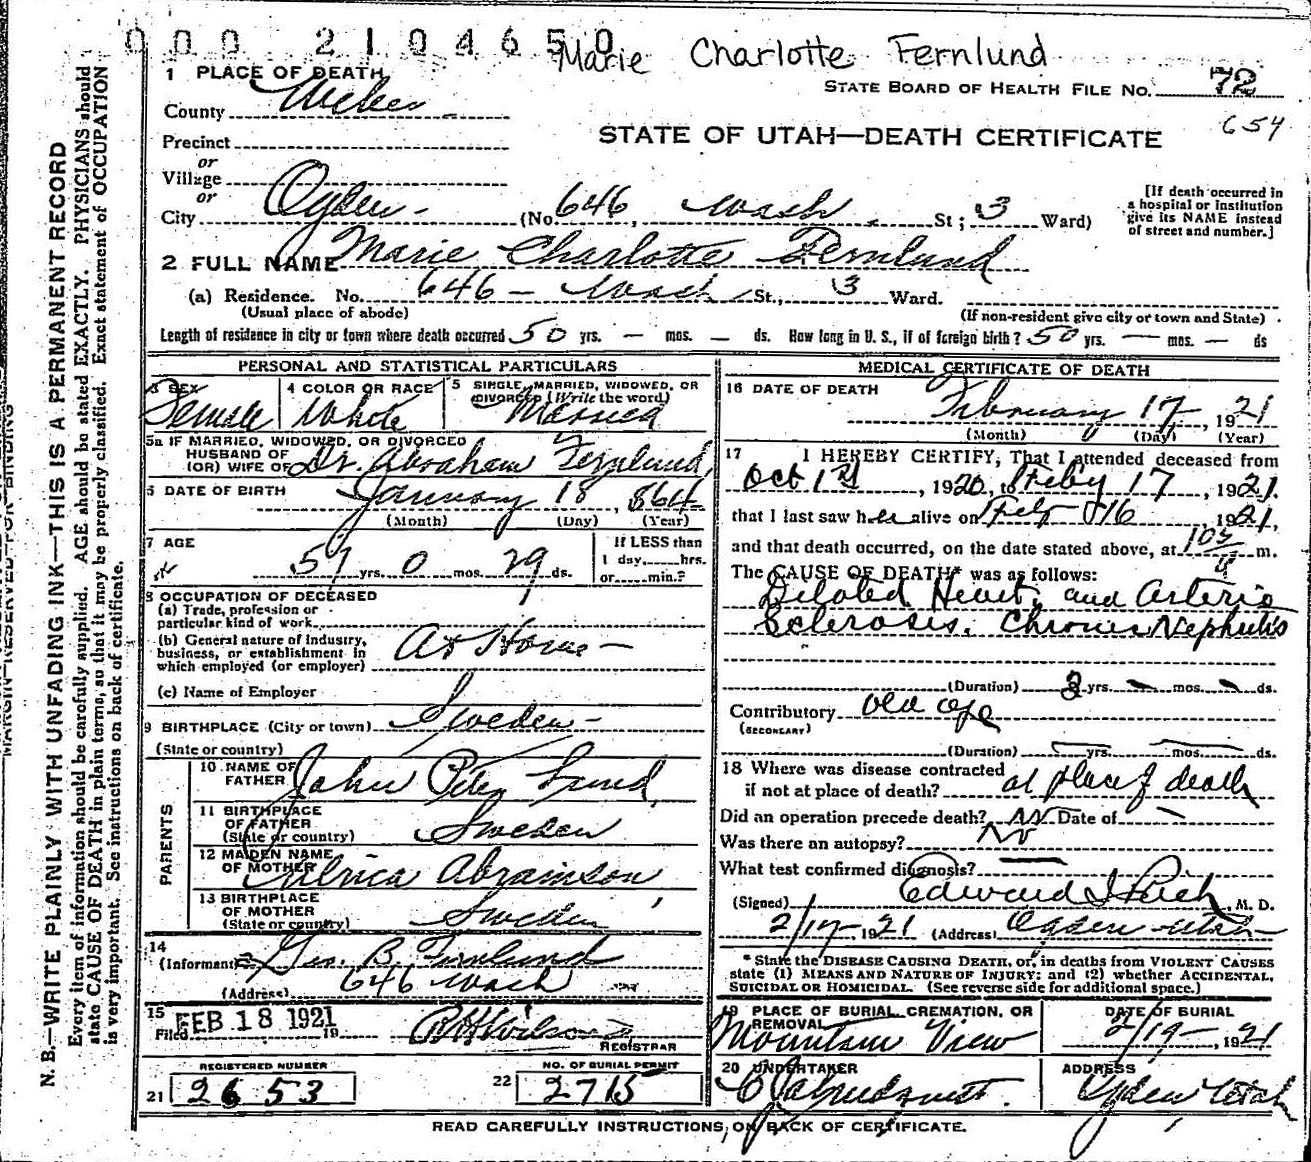 0 0 0 2 1 0 4 6 5 0
Marie Charlotte Fernlund
STATE BOARD OF HEALTH FILE NO. 72
654
STATE OF UTAH—DEATH CERTIFICATE
1 PLACE OF DEATH
County Weber
Precinct
or
Village
or
City Ogden (No. 646, Wash. St; 3 Ward)
[If death occurred in
a hospital or institution
give its NAME instead
of street and number.]
2 FULL NAME Marie Charlotte Fernlund
(a) Residence. No. 646 - Wash St., 3 Ward.
(Usual place of abode) (If non-resident give city or town and State)
Length of residence in city or town where death occurred 50 yrs. — mos. — ds. How long in U. S., if of foreign birth? 50 yrs. — mos. — ds
PERSONAL AND STATISTICAL PARTICULARS
3 SEX Female
4 COLOR OR RACE White
5 SINGLE, MARRIED, WIDOWED, OR
DIVORCED (Write the word) Married
5a IF MARRIED, WIDOWED, OR DIVORCED
HUSBAND OF
(OR) WIFE OF Dr. Abraham Fernlund
6 DATE OF BIRTH January 18, 1864
(Month) (Day) (Year)
7 AGE 57 yrs. 0 mos. 29 ds.
If LESS than
1 day, hrs.
or min.?
8 OCCUPATION OF DECEASED
(a) Trade, profession or
particular kind of work
(b) General nature of industry,
business, or establishment in
which employed (or employer) At Home —
(c) Name of Employer
9 BIRTHPLACE (City or town) Sweden -
(State or country)
PARENTS
10 NAME OF
FATHER John Peter Lund
11 BIRTHPLACE
OF FATHER
(State or country) Sweden
12 MAIDEN NAME
OF MOTHER Ulrica Abramson
13 BIRTHPLACE
OF MOTHER
(State or country) Sweden
14
(Informant) Geo. B. Fernlund
(Address) 646 Wash
15
Filed FEB 18 1921 19
REGISTRAR
REGISTERED NUMBER
21 2653
NO. OF BURIAL PERMIT
22 2715
MEDICAL CERTIFICATE OF DEATH
16 DATE OF DEATH
February 17, 1921
(Month) (Day) (Year)
17 I HEREBY CERTIFY, That I attended deceased from
Oct 1st, 1920, to Feby 17, 1921.
that I last saw her alive on Feby 16 1921,
and that death occurred, on the date stated above, at m.
The CAUSE OF DEATH* was as follows:
Dilated Heart, and Arterio
Sclerosis. Chronic Nephritis
(Duration) 3 yrs. — mos. — ds.
Contributory old age
(SECONDARY)
(Duration) yrs. mos. ds.
18 Where was disease contracted
if not at place of death? at place of death
Did an operation precede death? no Date of —
Was there an autopsy? No
What test confirmed diagnosis? —
(Signed) Edward I Rich, M. D.
2/17, 1921 (Address) Ogden Utah
* State the DISEASE CAUSING DEATH, or, in deaths from VIOLENT CAUSES
state (1) MEANS AND NATURE OF INJURY; and (2) whether ACCIDENTAL,
SUICIDAL OR HOMICIDAL. (See reverse side for additional space.)
19 PLACE OF BURIAL, CREMATION, OR
REMOVAL
Mountain View
DATE OF BURIAL
2/19, 1921
20 UNDERTAKER
ADDRESS
Ogden Utah
READ CAREFULLY INSTRUCTIONS, ON BACK OF CERTIFICATE.
MARGIN RESERVED FOR BINDING
N. B.—WRITE PLAINLY WITH UNFADING INK—THIS IS A PERMANENT RECORD
Every item of information should be carefully supplied. AGE should be stated EXACTLY. PHYSICIANS should
state CAUSE OF DEATH in plain terms, so that it may be properly classified. Exact statement of OCCUPATION
is very important. See instructions on back of certificate.